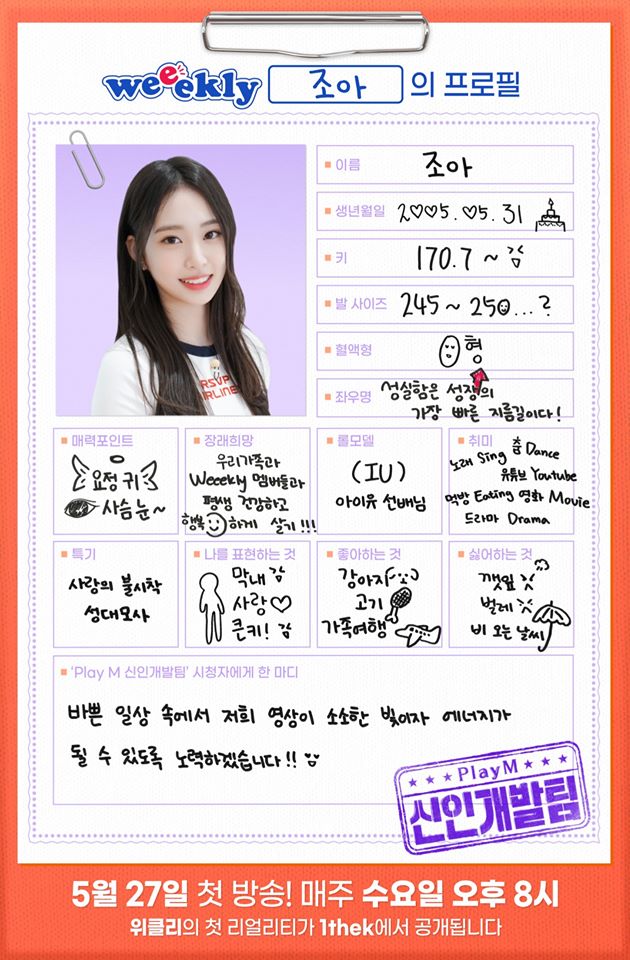 weeekly 조아 의 프로필
이름 조아
생년월일 2005.05.31
키 170.7 ~
발 사이즈 245 ~ 250...?
혈액형 O형
좌우명 성실함은 성장의
가장 빠른 지름길이다!
매력포인트
요정 귀
사슴눈~
장래희망
우리가족과
Weeekly 멤버들과
평생 건강하고
행복하게 살기!!!
롤모델
(IU)
아이유 선배님
취미
노래 Sing 춤 Dance
유튜브 Youtube
먹방 Eating 영화 Movie
드라마 Drama
특기
사랑의 불시착
성대모사
나를 표현하는 것
막내
사랑♡
큰키!
좋아하는 것
강아지
고기
가족여행
싫어하는 것
깻잎
벌레
비 오는 날씨
‘Play M 신인개발팀’ 시청자에게 한 마디
바쁜 일상 속에서 저희 영상이 소소한 빛이자 에너지가
될 수 있도록 노력하겠습니다!!
PlayM
신인개발팀
5월 27일 첫 방송! 매주 수요일 오후 8시
위클리의 첫 리얼리티가 1thek에서 공개됩니다